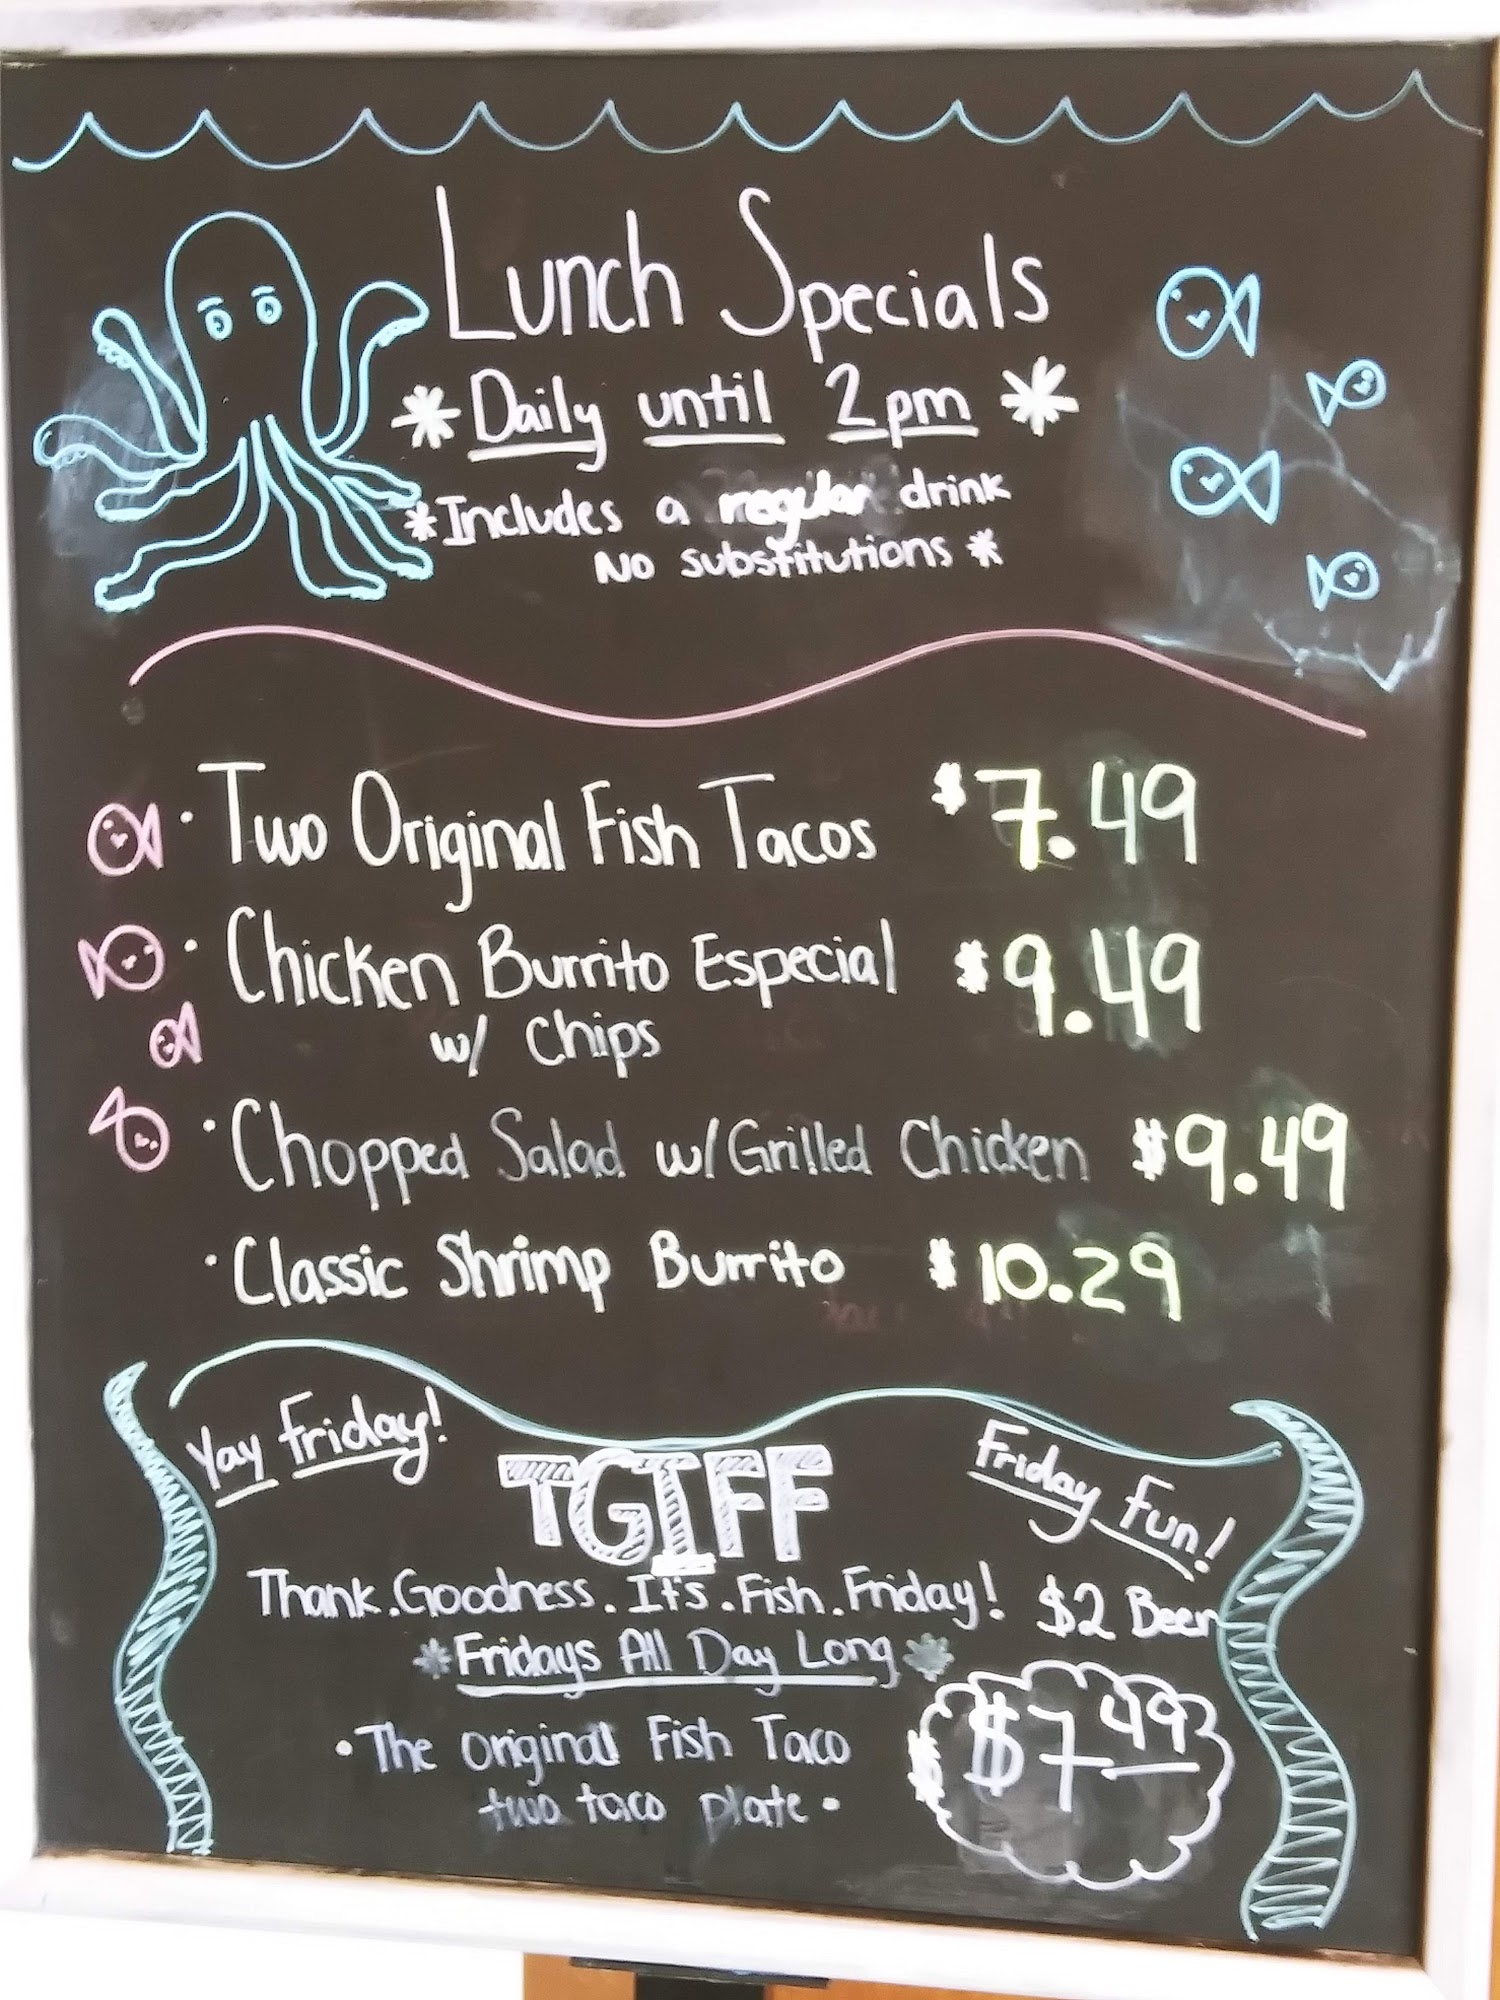 Lunch Specials
*Daily until 2pm*
*Includes a regular drink
No substitutions*
• Two Original Fish Tacos $7.49
• Chicken Burrito Especial $9.49
w/ Chips
• Chopped Salad w/Grilled Chicken $9.49
• Classic Shrimp Burrito $10.29
Yay Friday!
TGIFF
Friday Fun!
Thank.Goodness.It's.Fish.Friday! $2 Beer
*Fridays All Day Long*
• The original Fish Taco
two taco plate •
$7 49